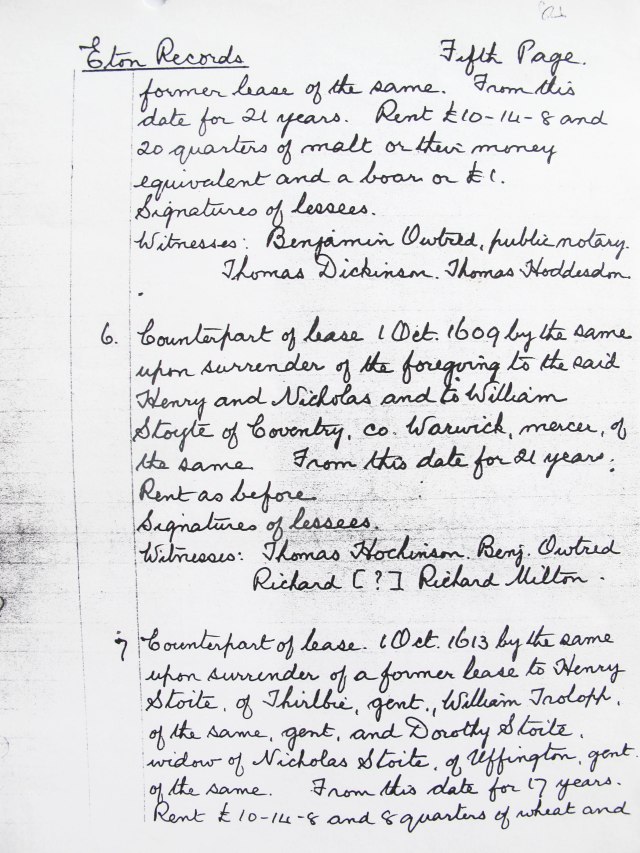 Eton Records Fifth Page.
former lease of the same. From this
date for 21 years. Rent £10-14-8 and
20 quarters of malt or their money
equivalent and a boar or £1.
Signatures of lessees.
Witnesses: Benjamin Owtred, public notary.
Thomas Dickinson. Thomas Hoddesdon.
6. Counterpart of lease 1 Oct. 1609 by the same
upon surrender of the foregoing to the said
Henry and Nicholas and to William
Stoyte of Coventry, co. Warwick, mercer, of
the same From this date for 21 years.
Rent as before
Signatures of lessees.
Witnesses: Thomas Hochinson. Benj. Owtred
Richard [?] Richard Milton.
7 Counterpart of lease. 1 Oct. 1613 by the same
upon surrender of a former lease to Henry
Stoite, of Thirlbie, gent., William Trolopp,
of the same, gent, and Dorothy Stoite,
widow of Nicholas Stoite, of Uffington, gent.
of the same. From this date for 17 years.
Rent £10-14-8 and 8 quarters of wheat and